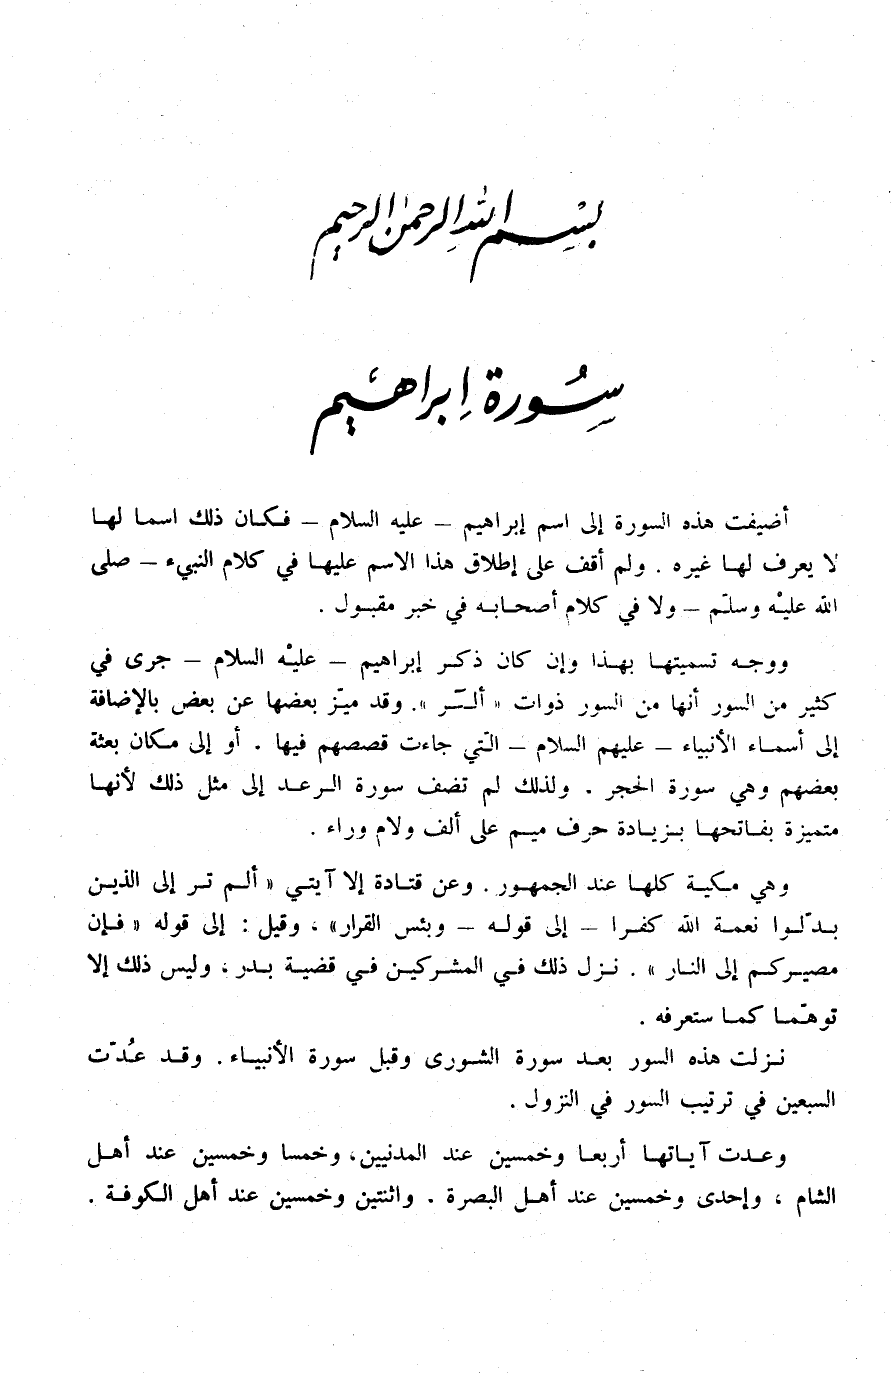 بِسْمِ اللهِ الرحمٰن الرحيم
سِورة اِبراهيم
أضيفت هذه السورة إلى اسم إبراهيم – عليه السلام – فكان ذلك اسما لها
لا يعرف لها غيره . ولم أقف على إطلاق هذا الاسم عليها في كلام النبيء – صلى
الله عليْه وسلّم – ولا في كلام أصحابه في خبر مقبول .
ووجه تسميتها بهذا وإن كان ذكر إبراهيم – عليْه السلام – جرى في
كثير من السور أنها من السور ذوات « ألّر ». وقد ميّز بعضها عن بعض بالإضافة
إلى أسماء الأنبياء – عليهم السلام – الّتي جاءت قصصهم فيها . أو إلى مكان بعثة
بعضهم وهي سورة الحجر . ولذلك لم تضف سورة الرعد إلى مثل ذلك لأنها
متميزة بفاتحها بزيادة حرف ميم على ألف ولام وراء .
وهي مكية كلها عند الجمهور . وعن قتادة إلا آيتي « ألم تر إلى الذين
بدّلوا نعمة الله كفرا – إلى قوله – وبئس القرار» ، وقيل : إلى قوله « فإن
مصيركم إلى النار » . نزل ذلك في المشركين في قضية بدر ، وليس ذلك إلا
توهّما كما ستعرفه .
نزلت هذه السور بعد سورة الشورى وقبل سورة الأنبياء . وقد عُدّت
السبعين في ترتيب السور في النزول .
وعدت آياتها أربعا وخمسين عند المدنيين، وخمسا وخمسين عند أهل
الشام ، وإحدى وخمسين عند أهل البصرة . واثنتين وخمسين عند أهل الكوفة .